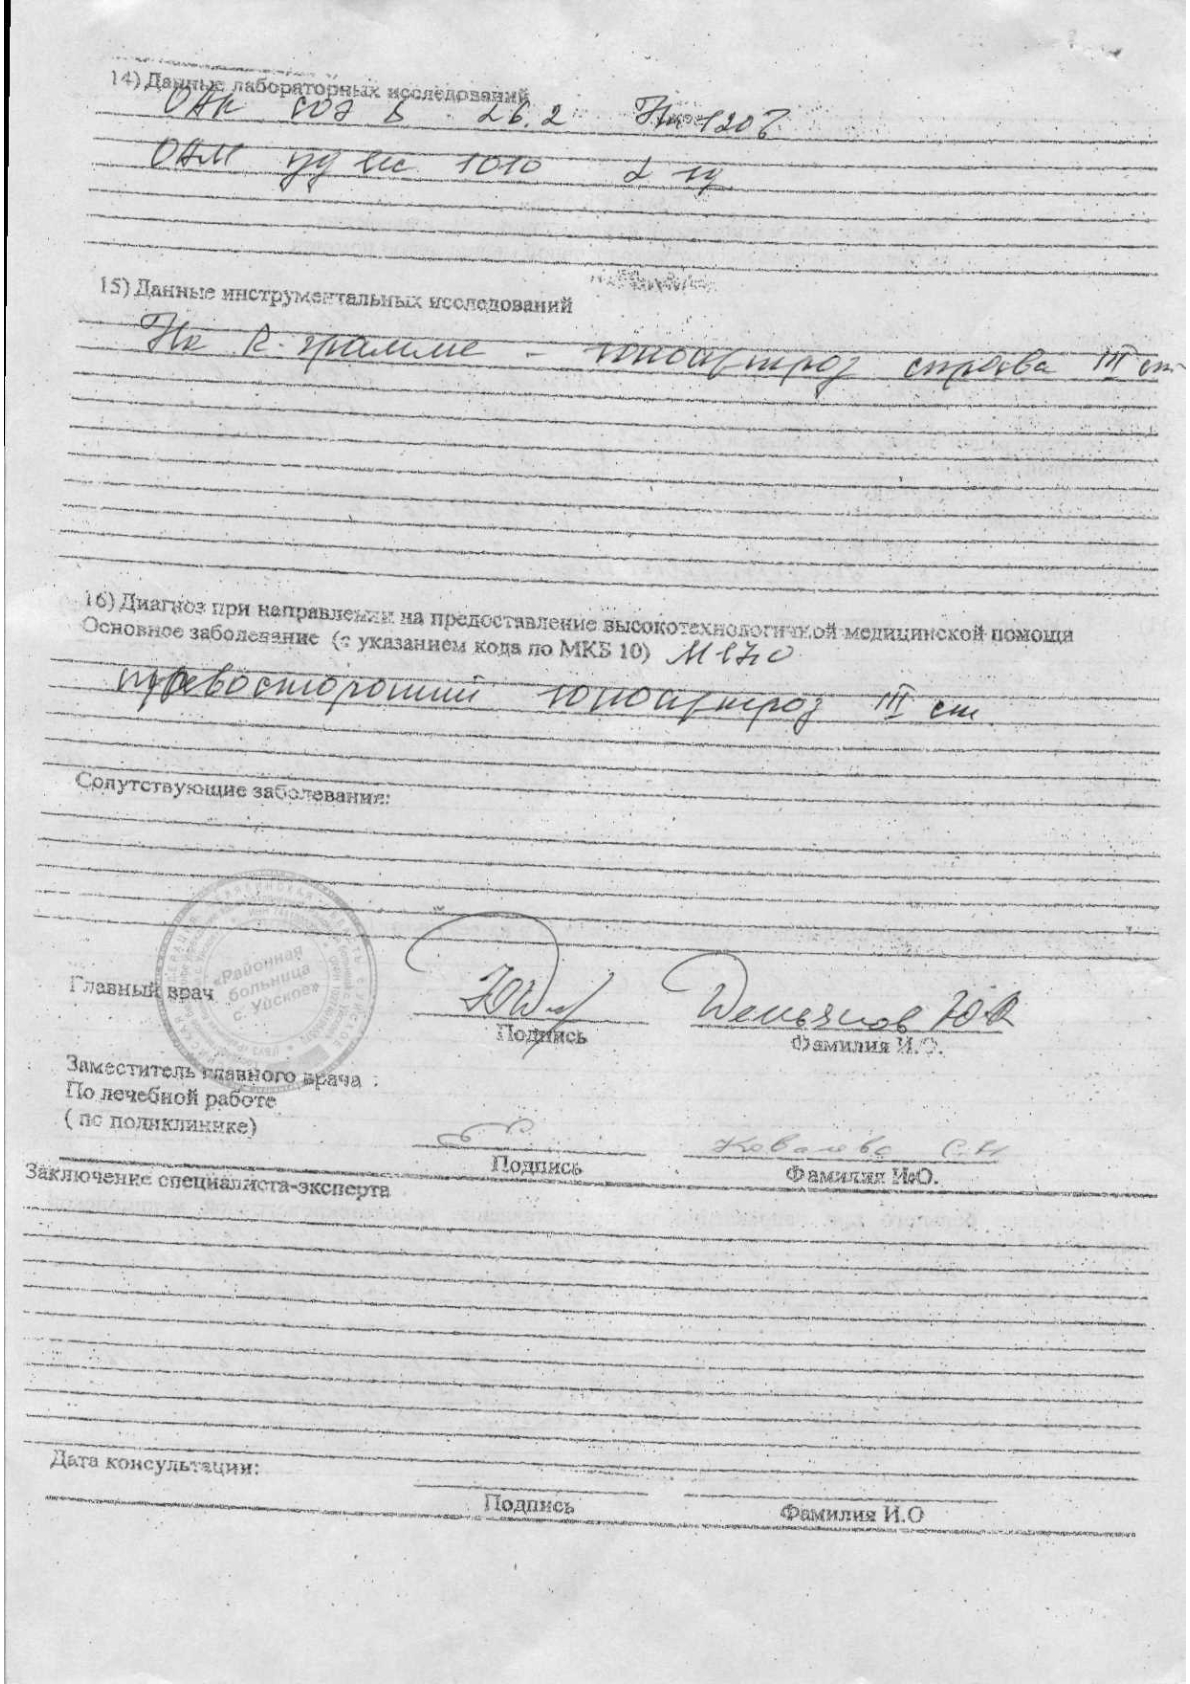 14) Данные лабораторных исследований
ОАК СОЭ 6 26.2 Нв 120
ОАМ уд вес 1010
15) Данные инструментальных исследований
На R-грамме - гонартроз справа III ст
16) Диагноз при направлении на предоставление высокотехнологичной медицинской помощи
Основное заболевание (с указанием кода по МКБ 10) М 17.0
правосторонний гонартроз III ст.
Сопутствующие заболевания:
«Районная
больница
с. Уйское»
Главный врач
Подпись
Фамилия И.О.
Заместитель главного врача
По лечебной работе
( по поликлинике)
Ковалева С.Н
Подпись
Фамилия И.О.
Заключение специалиста-эксперта
Дата консультации:
Подпись
Фамилия И.О